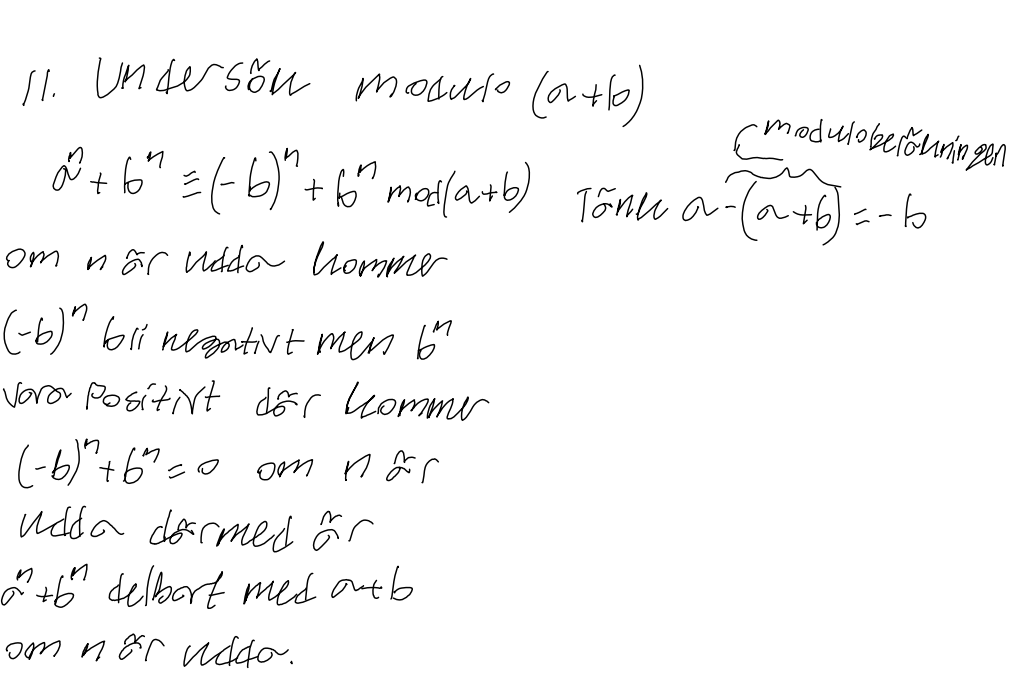 11. Undersök modulo (a+b)
aⁿ + bⁿ ≡ (-b)ⁿ + bⁿ mod(a+b)
moduloberäkningen
Tänk a-(a+b) = -b
om n är udda kommer
(-b)ⁿ bli negativt men bⁿ
vara positivt där kommer
(-b)ⁿ + bⁿ = 0 om n är
udda därmed är
aⁿ + bⁿ delbart med a+b
om n är udda.